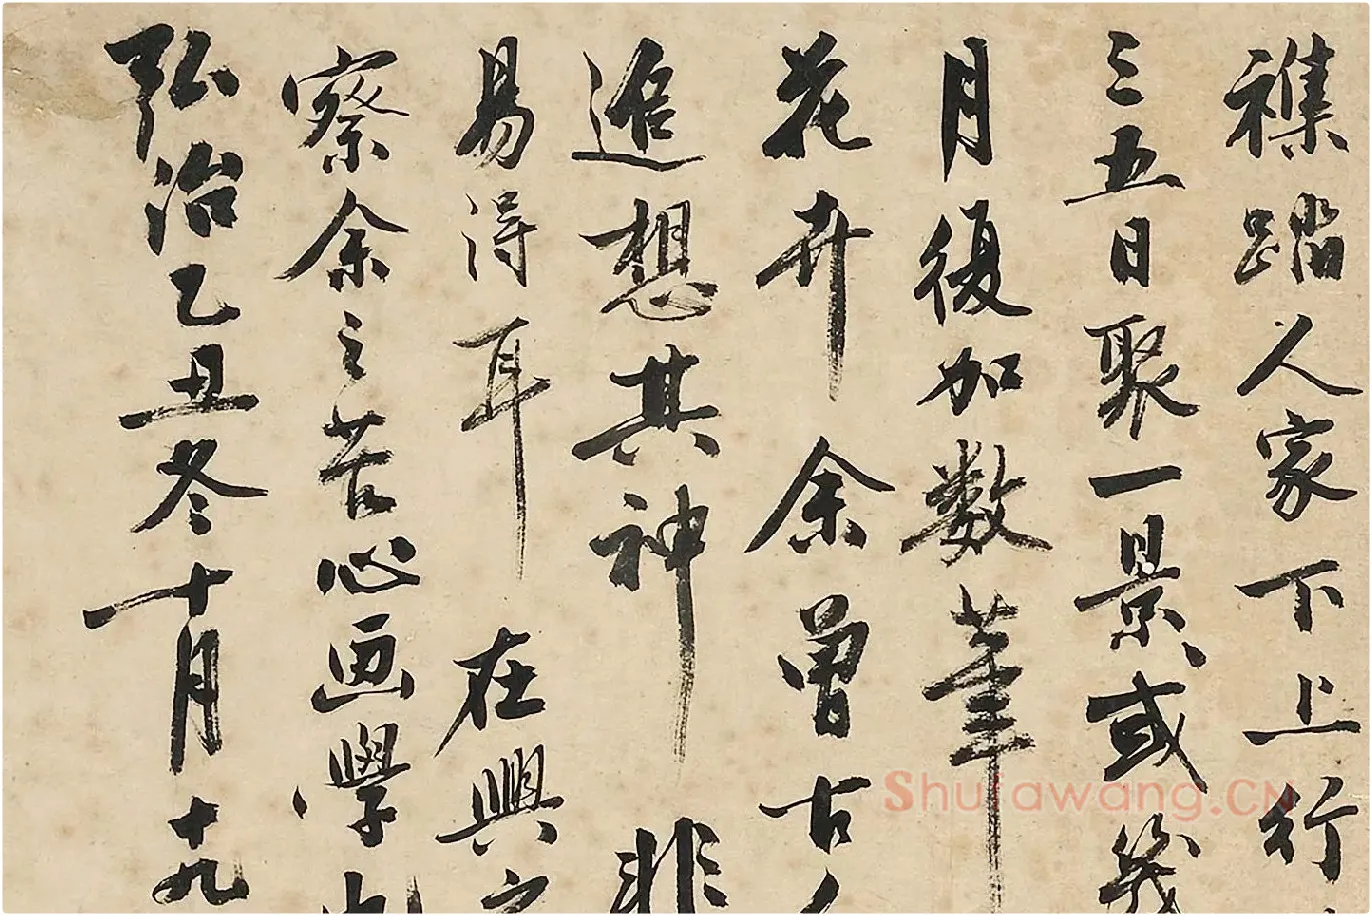 襍踏人家下上行
三五日聚一景或幾
月復加數筆
花卉余曾古
追想其神非
易得耳在興之
察余之苦心画學
弘治乙丑冬十月十九
Shufawang.CN